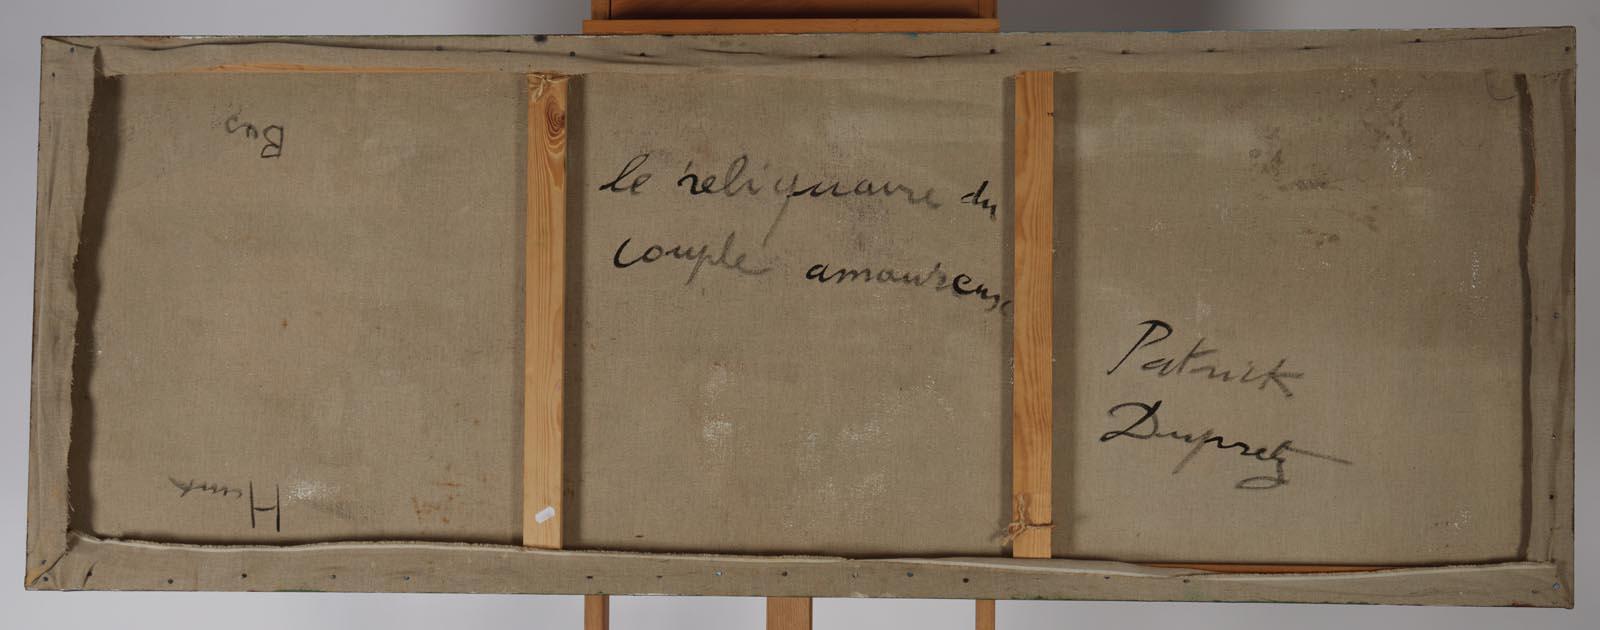 Bas
le reliquaire du
couple amoureux
Patrick
Dupretz
Haut